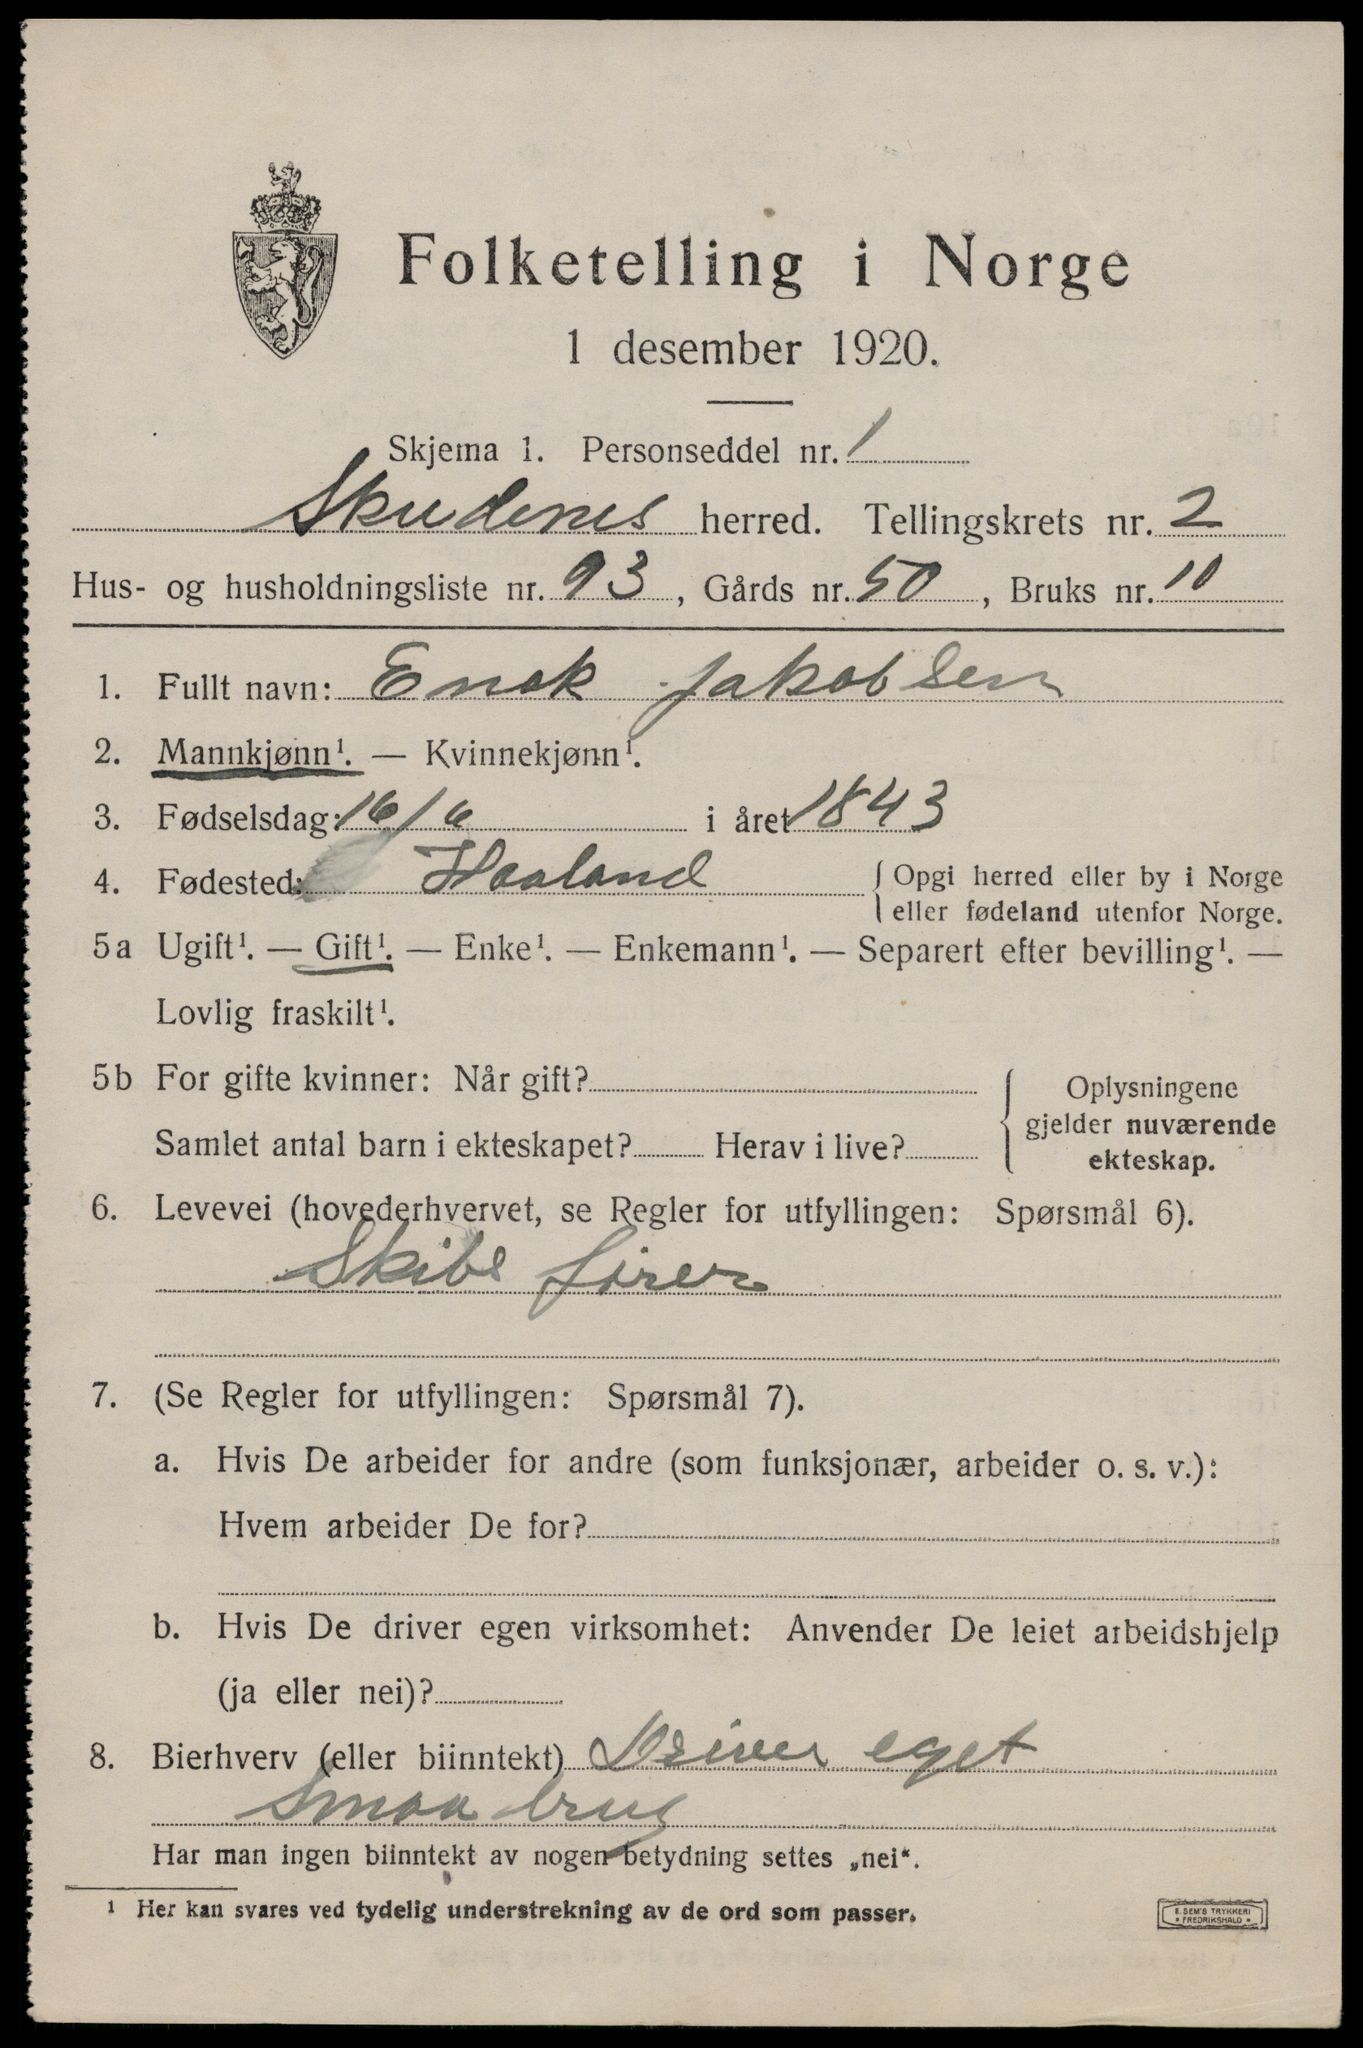 Folketelling i Norge
1 desember 1920.
Skjema 1. Personseddel nr. 1
Skudenes herred. Tellingskrets nr. 2
Hus- og husholdningsliste nr. 93, Gårds nr. 50, Bruks nr. 10
1. Fullt navn: Enok Jakobsen
2. Mannkjønn¹. — Kvinnekjønn¹.
3. Fødselsdag: 16/6 i året 1843
4. Fødested: Haaland { Opgi herred eller by i Norge
eller fødeland utenfor Norge.
5a Ugift¹. — Gift¹. — Enke¹. — Enkemann¹. — Separert efter bevilling¹. —
Lovlig fraskilt¹.
5b For gifte kvinner: Når gift?
Samlet antal barn i ekteskapet? Herav i live?
Oplysningene
gjelder nuværende
ekteskap.
6. Levevei (hovederhvervet, se Regler for utfyllingen: Spørsmål 6).
Skibs fører
7. (Se Regler for utfyllingen: Spørsmål 7).
a. Hvis De arbeider for andre (som funksjonær, arbeider o. s. v.):
Hvem arbeider De for?
b. Hvis De driver egen virksomhet: Anvender De leiet arbeidshjelp
(ja eller nei)?
8. Bierhverv (eller biinntekt) Driver eget
Smaa brug
Har man ingen biinntekt av nogen betydning settes „nei“.
¹ Her kan svares ved tydelig understrekning av de ord som passer.
E. SEM'S TRYKKERI
• FREDRIKSHALD •